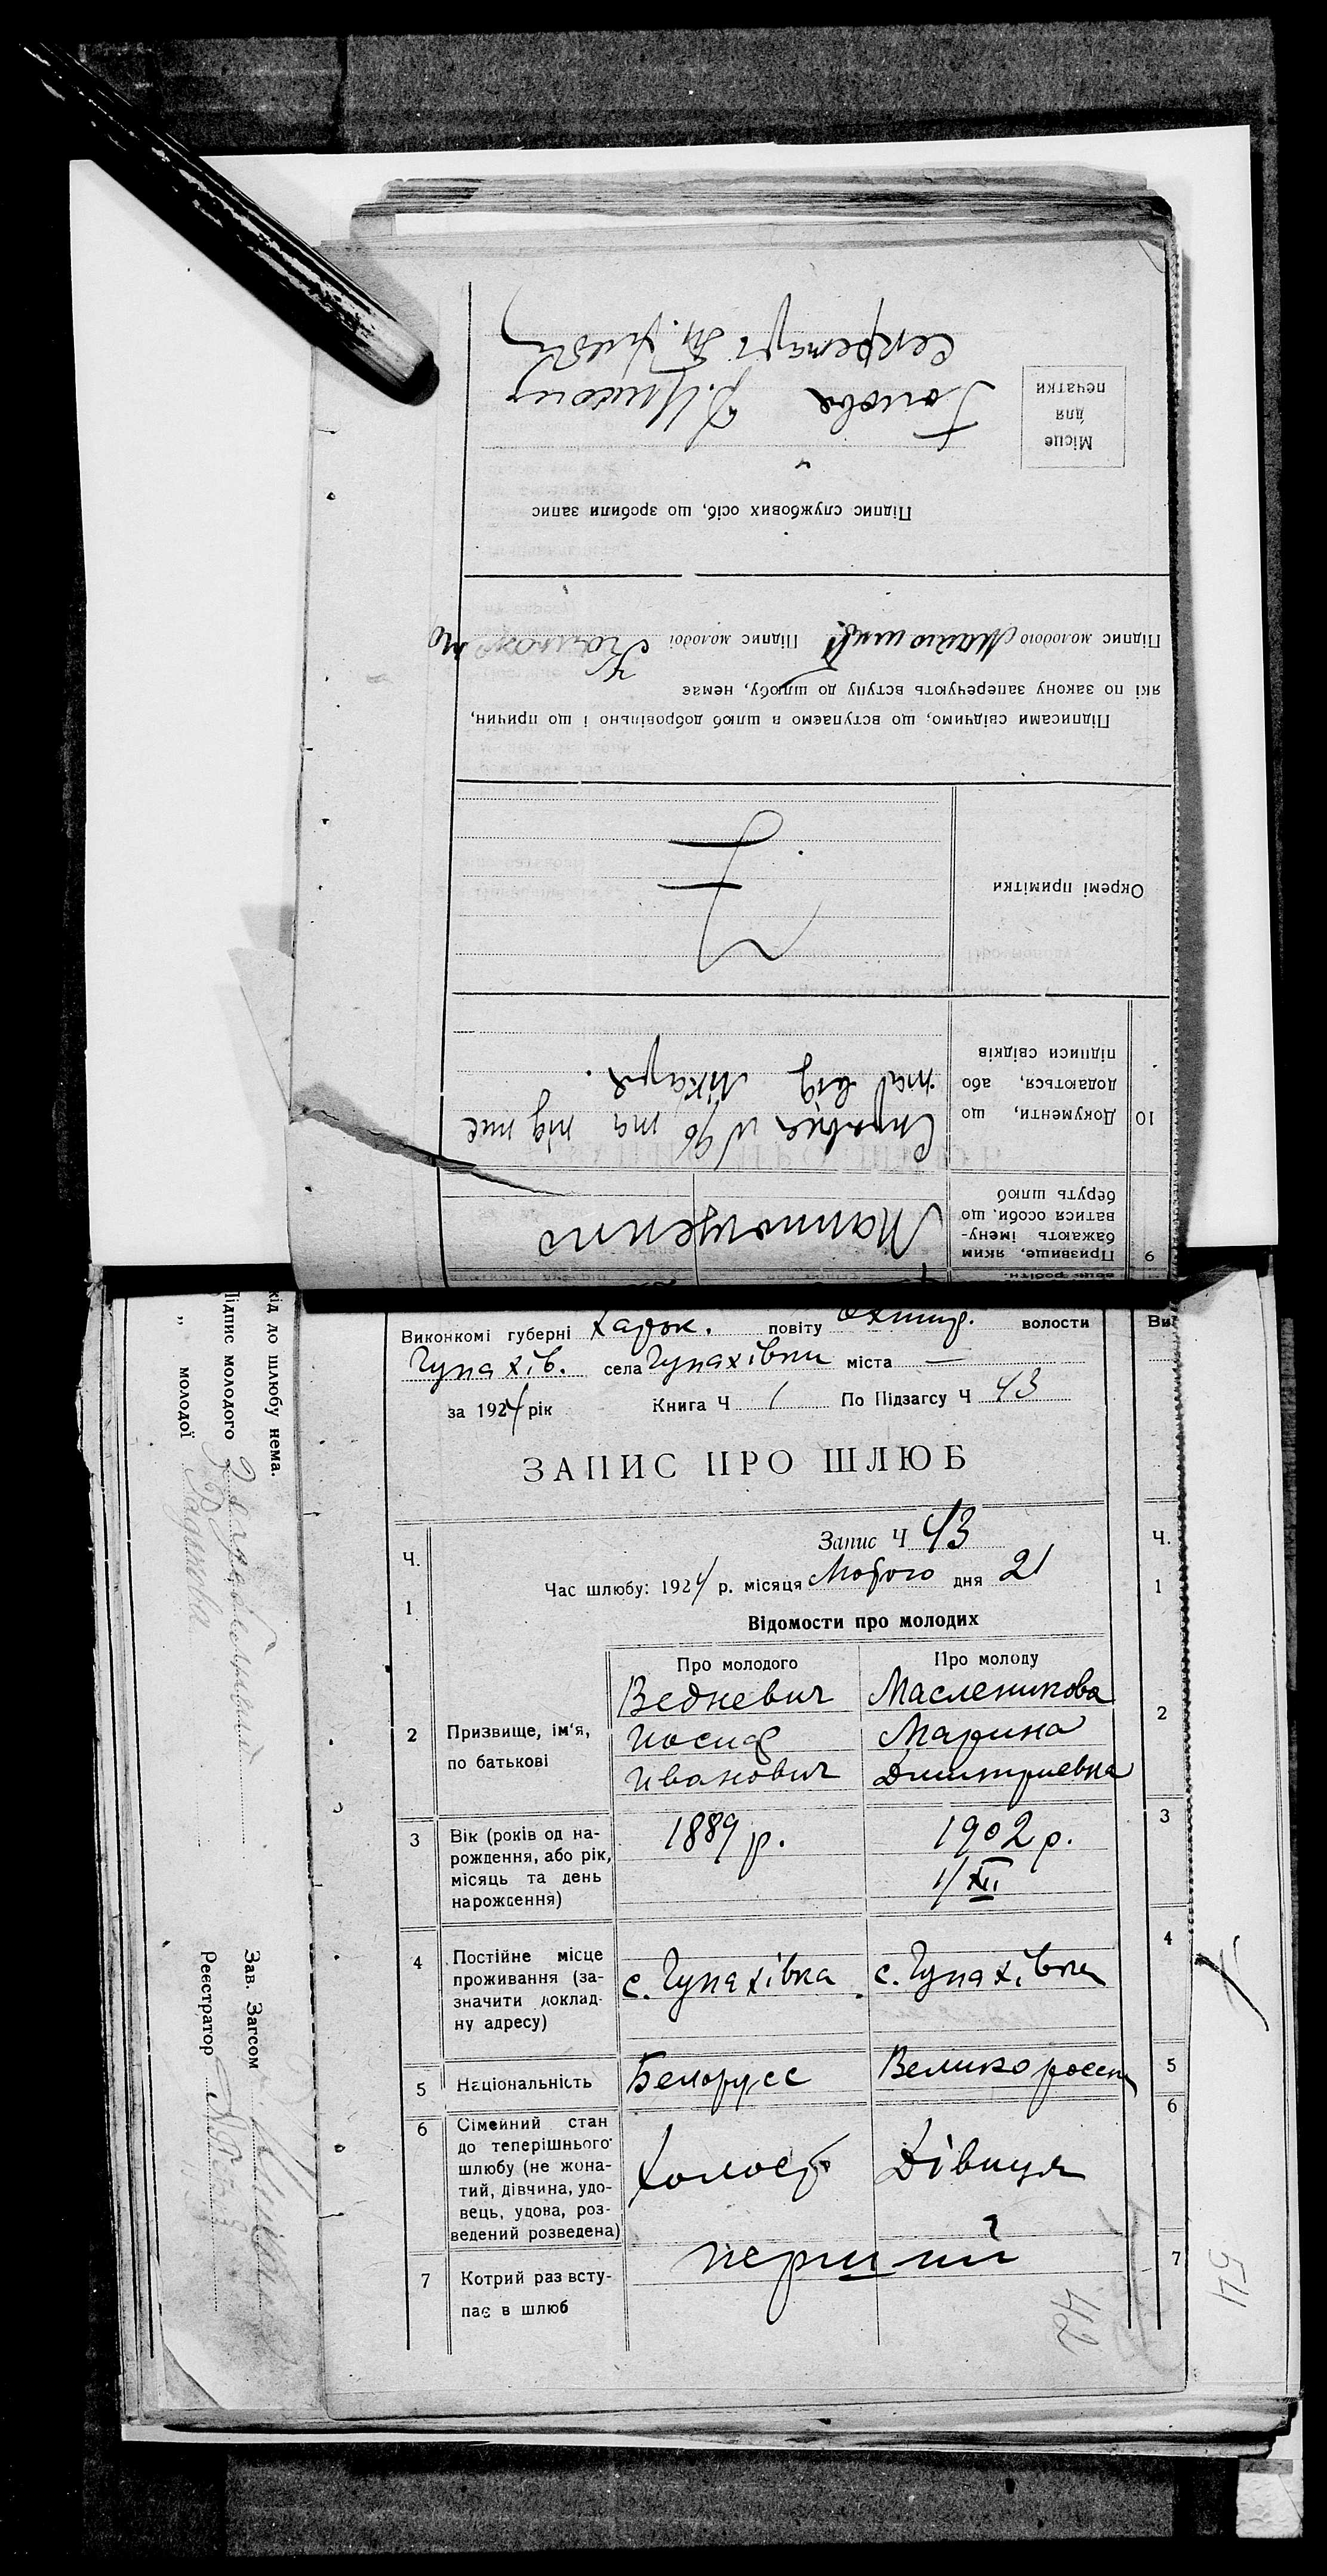 Секретарь
Голова
Місце
для
печатки
Підпис службових осіб, що зробили запис
Підпис молодого Підпис молодої
які по закону заперечують вступу до шлюбу, немає
Підписами свідчимо, що вступаємо в шлюб добровільно і що причин,
Окремі примітки
10 Документи, що
додаються, або
підписи свідків
Справка № 96 та під пис
ка від лікаря.
9 Призвище, яким
бажають імену-
ватися особи, що
беруть шлюб
Матющенко
Виконкомі губерні Харьк. повіту Охтир. волости
Чупахів. села Чупахівки міста —
за 1924 рік Книга Ч 1 По Підзагсу Ч 43
ЗАПИС ПРО ШЛЮБ
Запис Ч 43
Ч.
1 Час шлюбу: 1924 р. місяця Лютого дня 21
Відомости про молодих
Про молодого Про молоду
2 Призвище, ім'я,
по батькові
Ведневич Масленикова
Иосиф Марина
Иванович Дмитриевна
3 Вік (років од на-
рождення, або рік,
місяць та день
нарождення)
1889 р. 1902 р.
1/XII
4 Постійне місце
проживання (за-
значити доклад-
ну адресу)
с. Чупахівка с. Чупахівка
5 Національність Белорусс Великоросска
6 Сімейний стан
до теперішнього
шлюбу (не жона-
тий, дівчина, удо-
вець, удова, роз-
ведений розведена)
Холост Дівиця
7 Котрий раз всту-
пає в шлюб
перший
42
Ви
Ч.
1
2
3
4
5
6
7
54
кід до шлюбу нема.
Підпис молодого
„ молодої
Зав. Загсом
Реєстратор